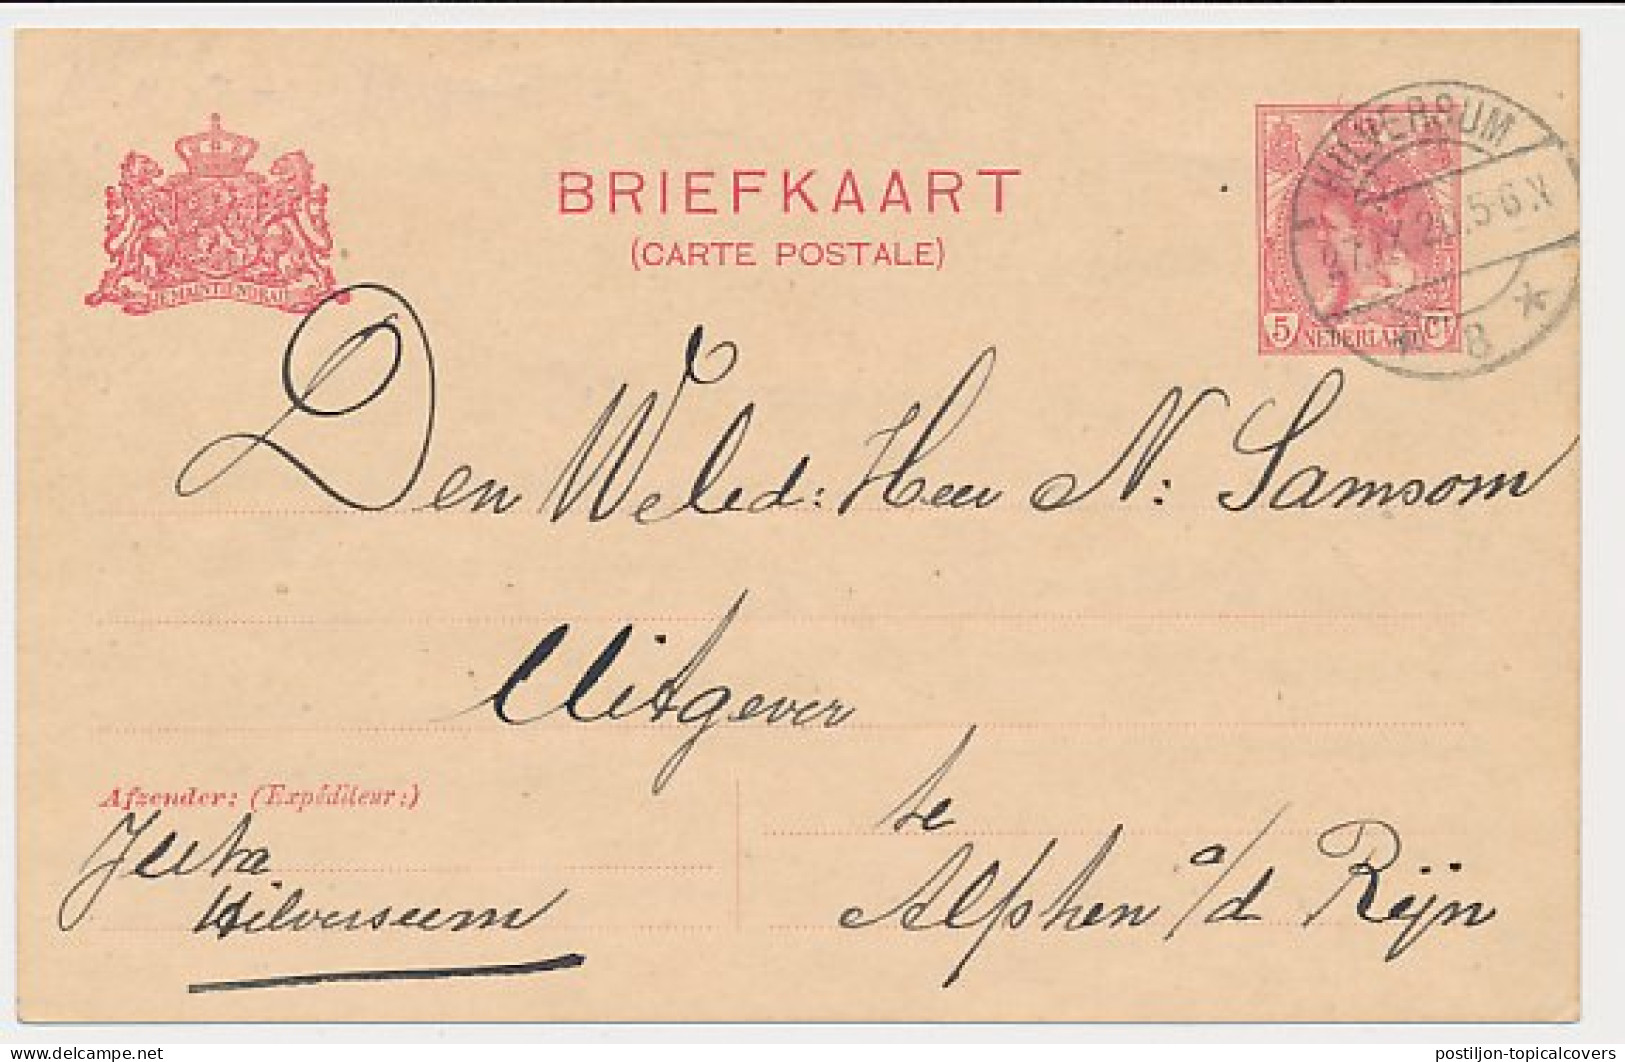 BRIEFKAART
(CARTE POSTALE)
JE MAINTIENDRAI
HILVERSUM
5-6.V
8
5 NEDERLAND CT
Den Weled: Heer N: Samsom
Uitgever
te
Alphen a/d Rijn
Afzender: (Expéditeur:)
Hilversum
Delcampe.net
postiljon-topicalcovers